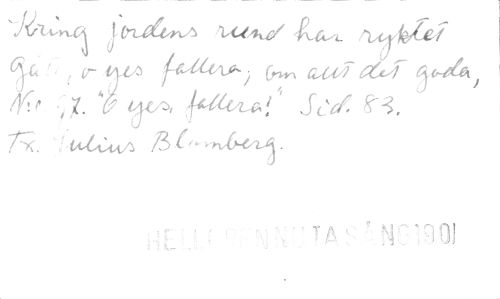 Kring jordens rund har ryktet
gått, o yes fallera; om allt det goda,
N:o 97. "O yes, fallera!" Sid. 83.
Tx. Julius Blomberg.
SÅNG 1901